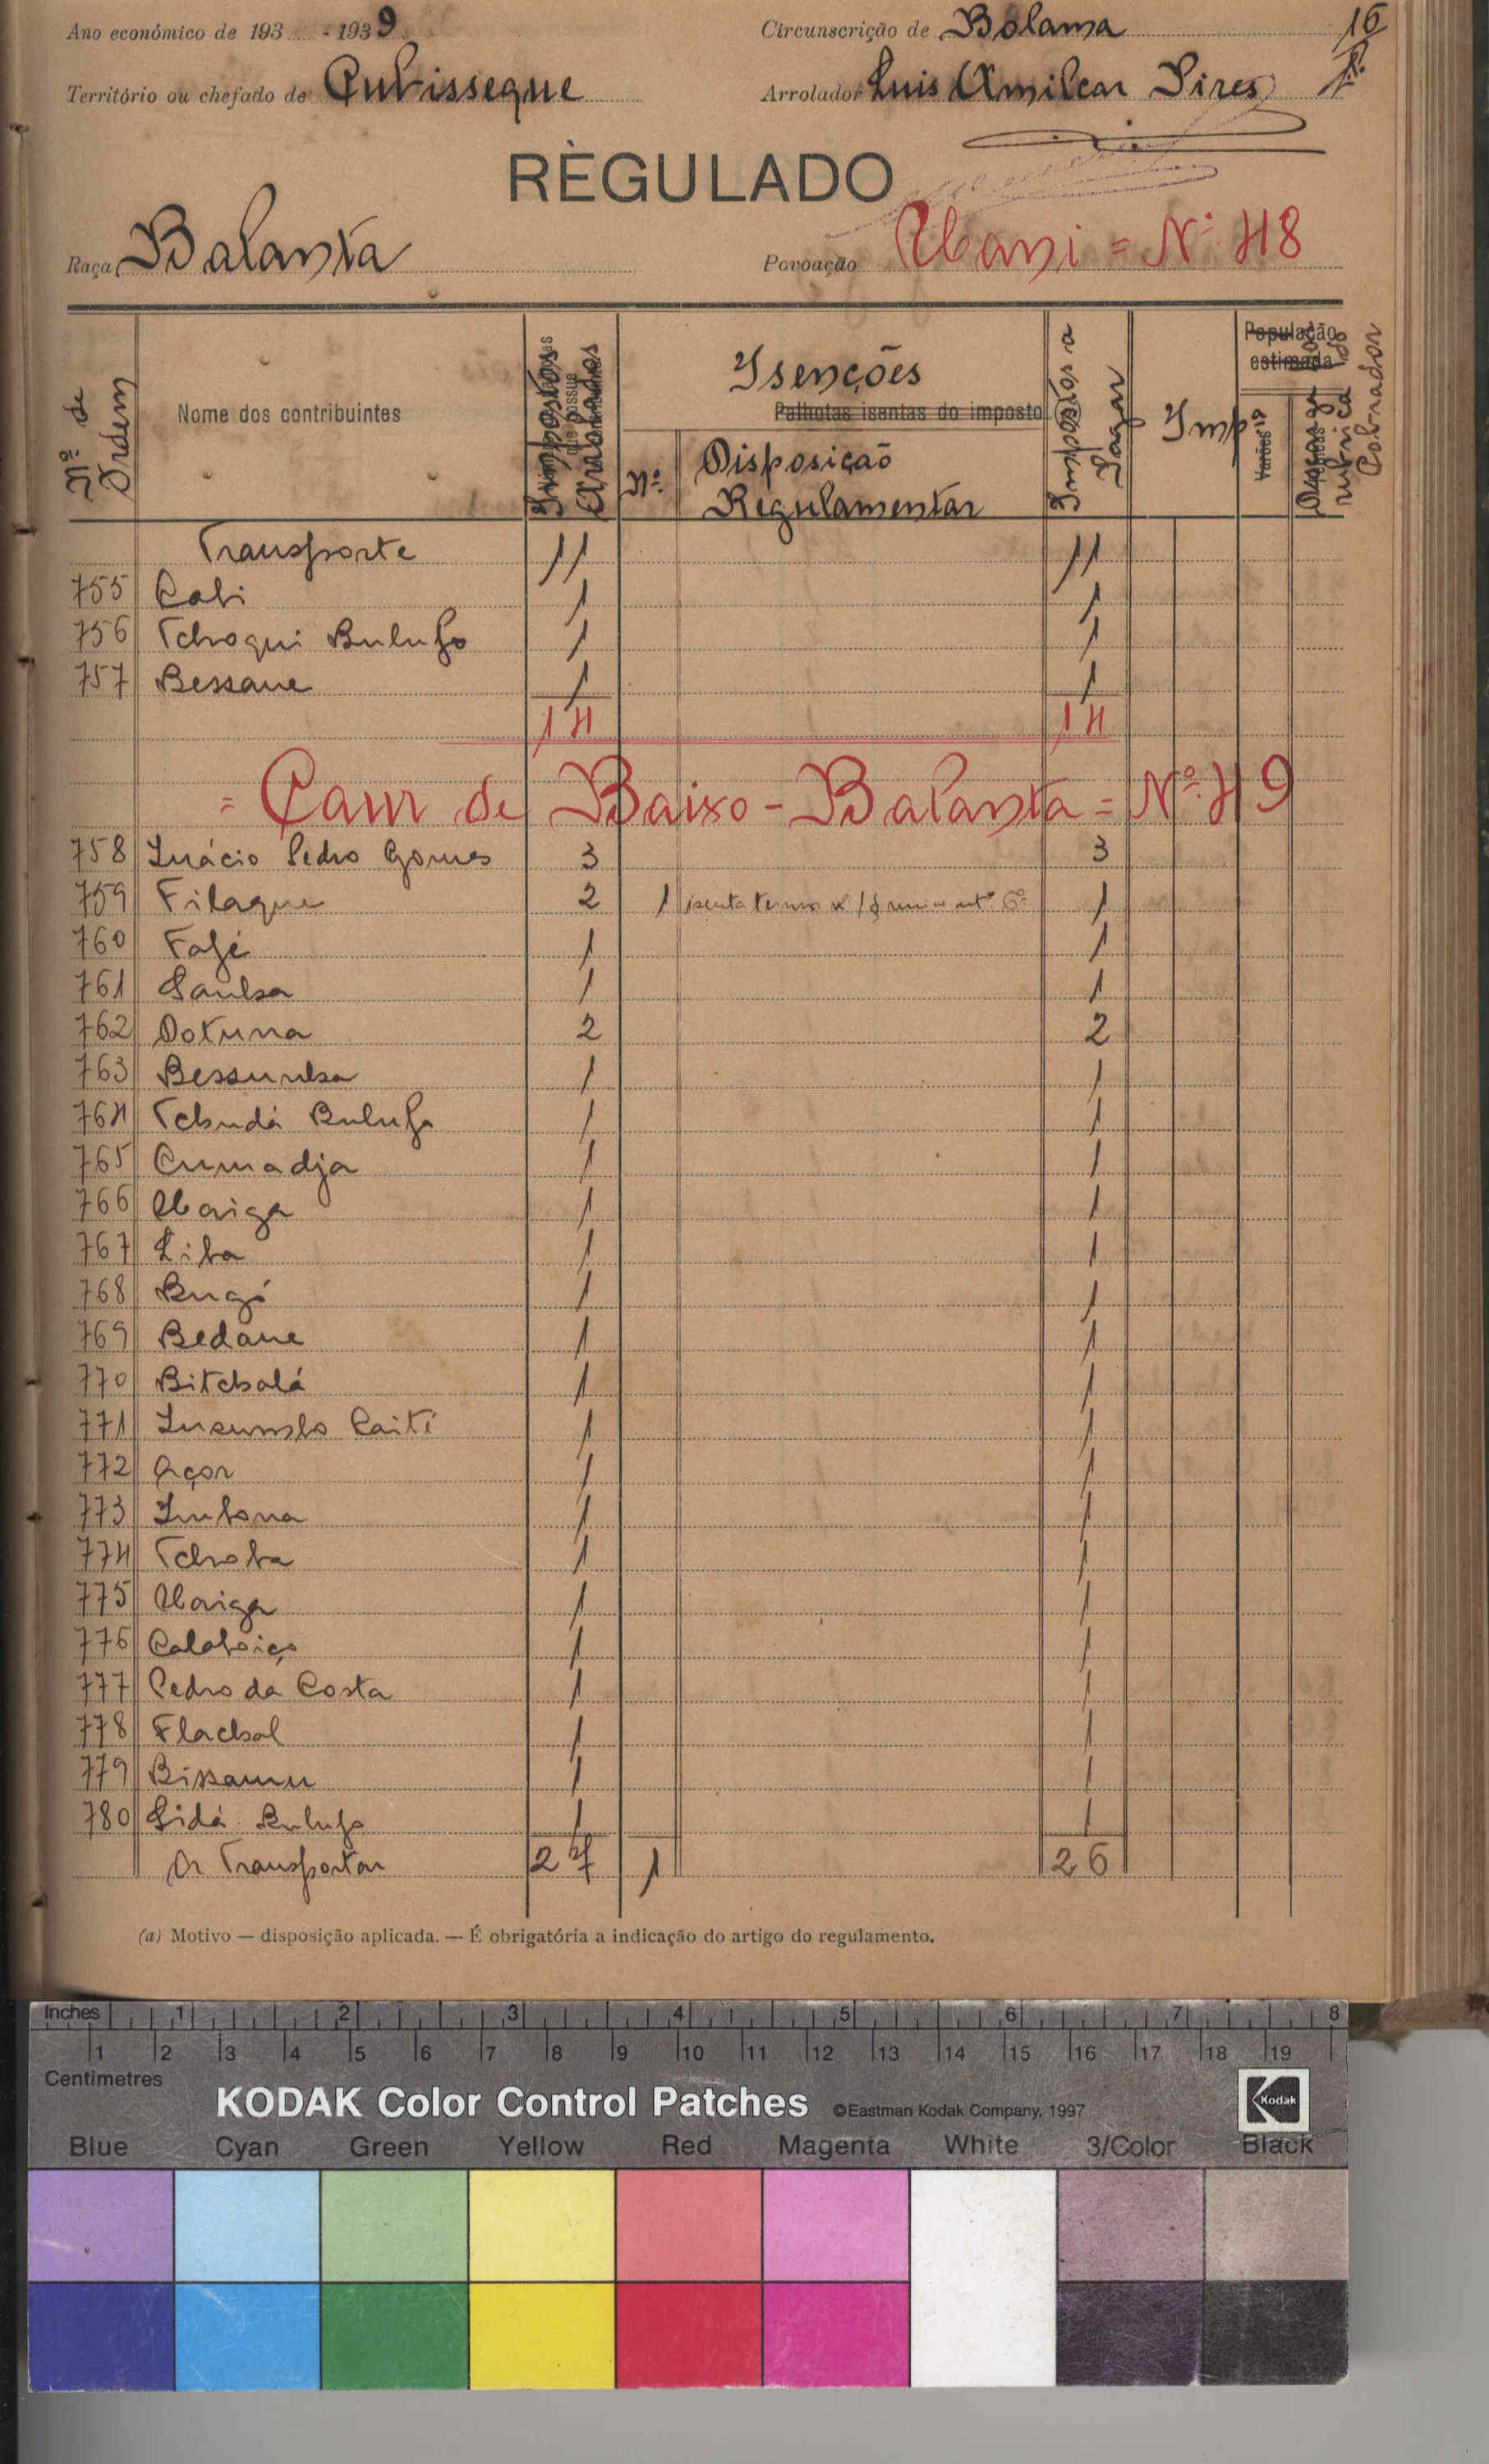 Ano económico de 193 - 1939
Circunscrição de Bolama
16
Território ou chefado de Cubisseque
Arrolador Luis Amilcar Pires
RÈGULADO
Raça Balanta
Povoação = Nº 48
Nº de Ordem
Nome dos contribuintes
Impostos Arrolados
Isenções
Palhotas isentas do imposto (a)
Nº
Disposição Regulamentar
Impostos a Pagar
Imp
População estimada
Varões
rubrica do Cobrador
Transporte 11 11
755 Cabi 1 1
756 Tchoqui Bulufo 1 1
757 Bessane 1 1
14 14
= Gam de Baixo - Balanta = Nº 49
758 Inácio Pedro Gomes 3 3
759 Filaque 2 1 1
760 Fafé 1 1
761 Sanha 1 1
762 Dotuna 2 2
763 Bessunha 1 1
764 Tchudá Bulufo 1 1
765 Cumadja 1 1
766 1 1
767 1 1
768 Bugó 1 1
769 Bedane 1 1
770 Bitchalá 1 1
771 1 1
772 Açor 1 1
773 1 1
774 Tchoba 1 1
775 1 1
776 1 1
777 Pedro da Costa 1 1
778 Flachal 1 1
779 1 1
780 Sidá Bulufo 1 1
A Transportar 27 1 26
(a) Motivo — disposição aplicada. — É obrigatória a indicação do artigo do regulamento.
Inches 1 2 3 4 5 6 7 8
1 2 3 4 5 6 7 8 9 10 11 12 13 14 15 16 17 18 19
Centimetres
KODAK Color Control Patches ©Eastman Kodak Company, 1997 Kodak
Blue Cyan Green Yellow Red Magenta White 3/Color Black